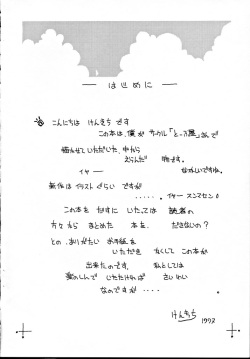 はじめに
こんにちは けんきち です
この本は、僕が サークル「とっつ屋」さんで
描かせて いただいた 中から
えらんだ 物です。
イヤー なつかしいですね。
新作は イラスト ぐらい ですが
・・・・・。イヤー スンマセン
この本を だすに いたっては 読者の
方々から まとめた 本を だせないの?
との、ありがたい お手紙を
いただき ‥ して この本が
出来たのです。 私としては
楽しんで いただければ さいわい
なのですが ・・・・ .
けんきち 1993